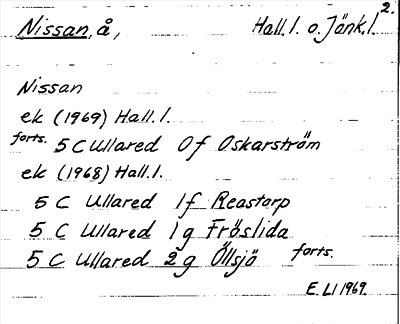 2.
Nissan, å, Hall. l. o. Jönk. l.
Nissan
ek (1969) Hall. l.
forts. 5 C Ullared 0 f Oskarström
ek (1968) Hall. l.
5 C Ullared 1 f Reastorp
5 C Ullared 1 g Fröslida
5 C Ullared 2 g Öllsjö forts.
E. Ll 1969.